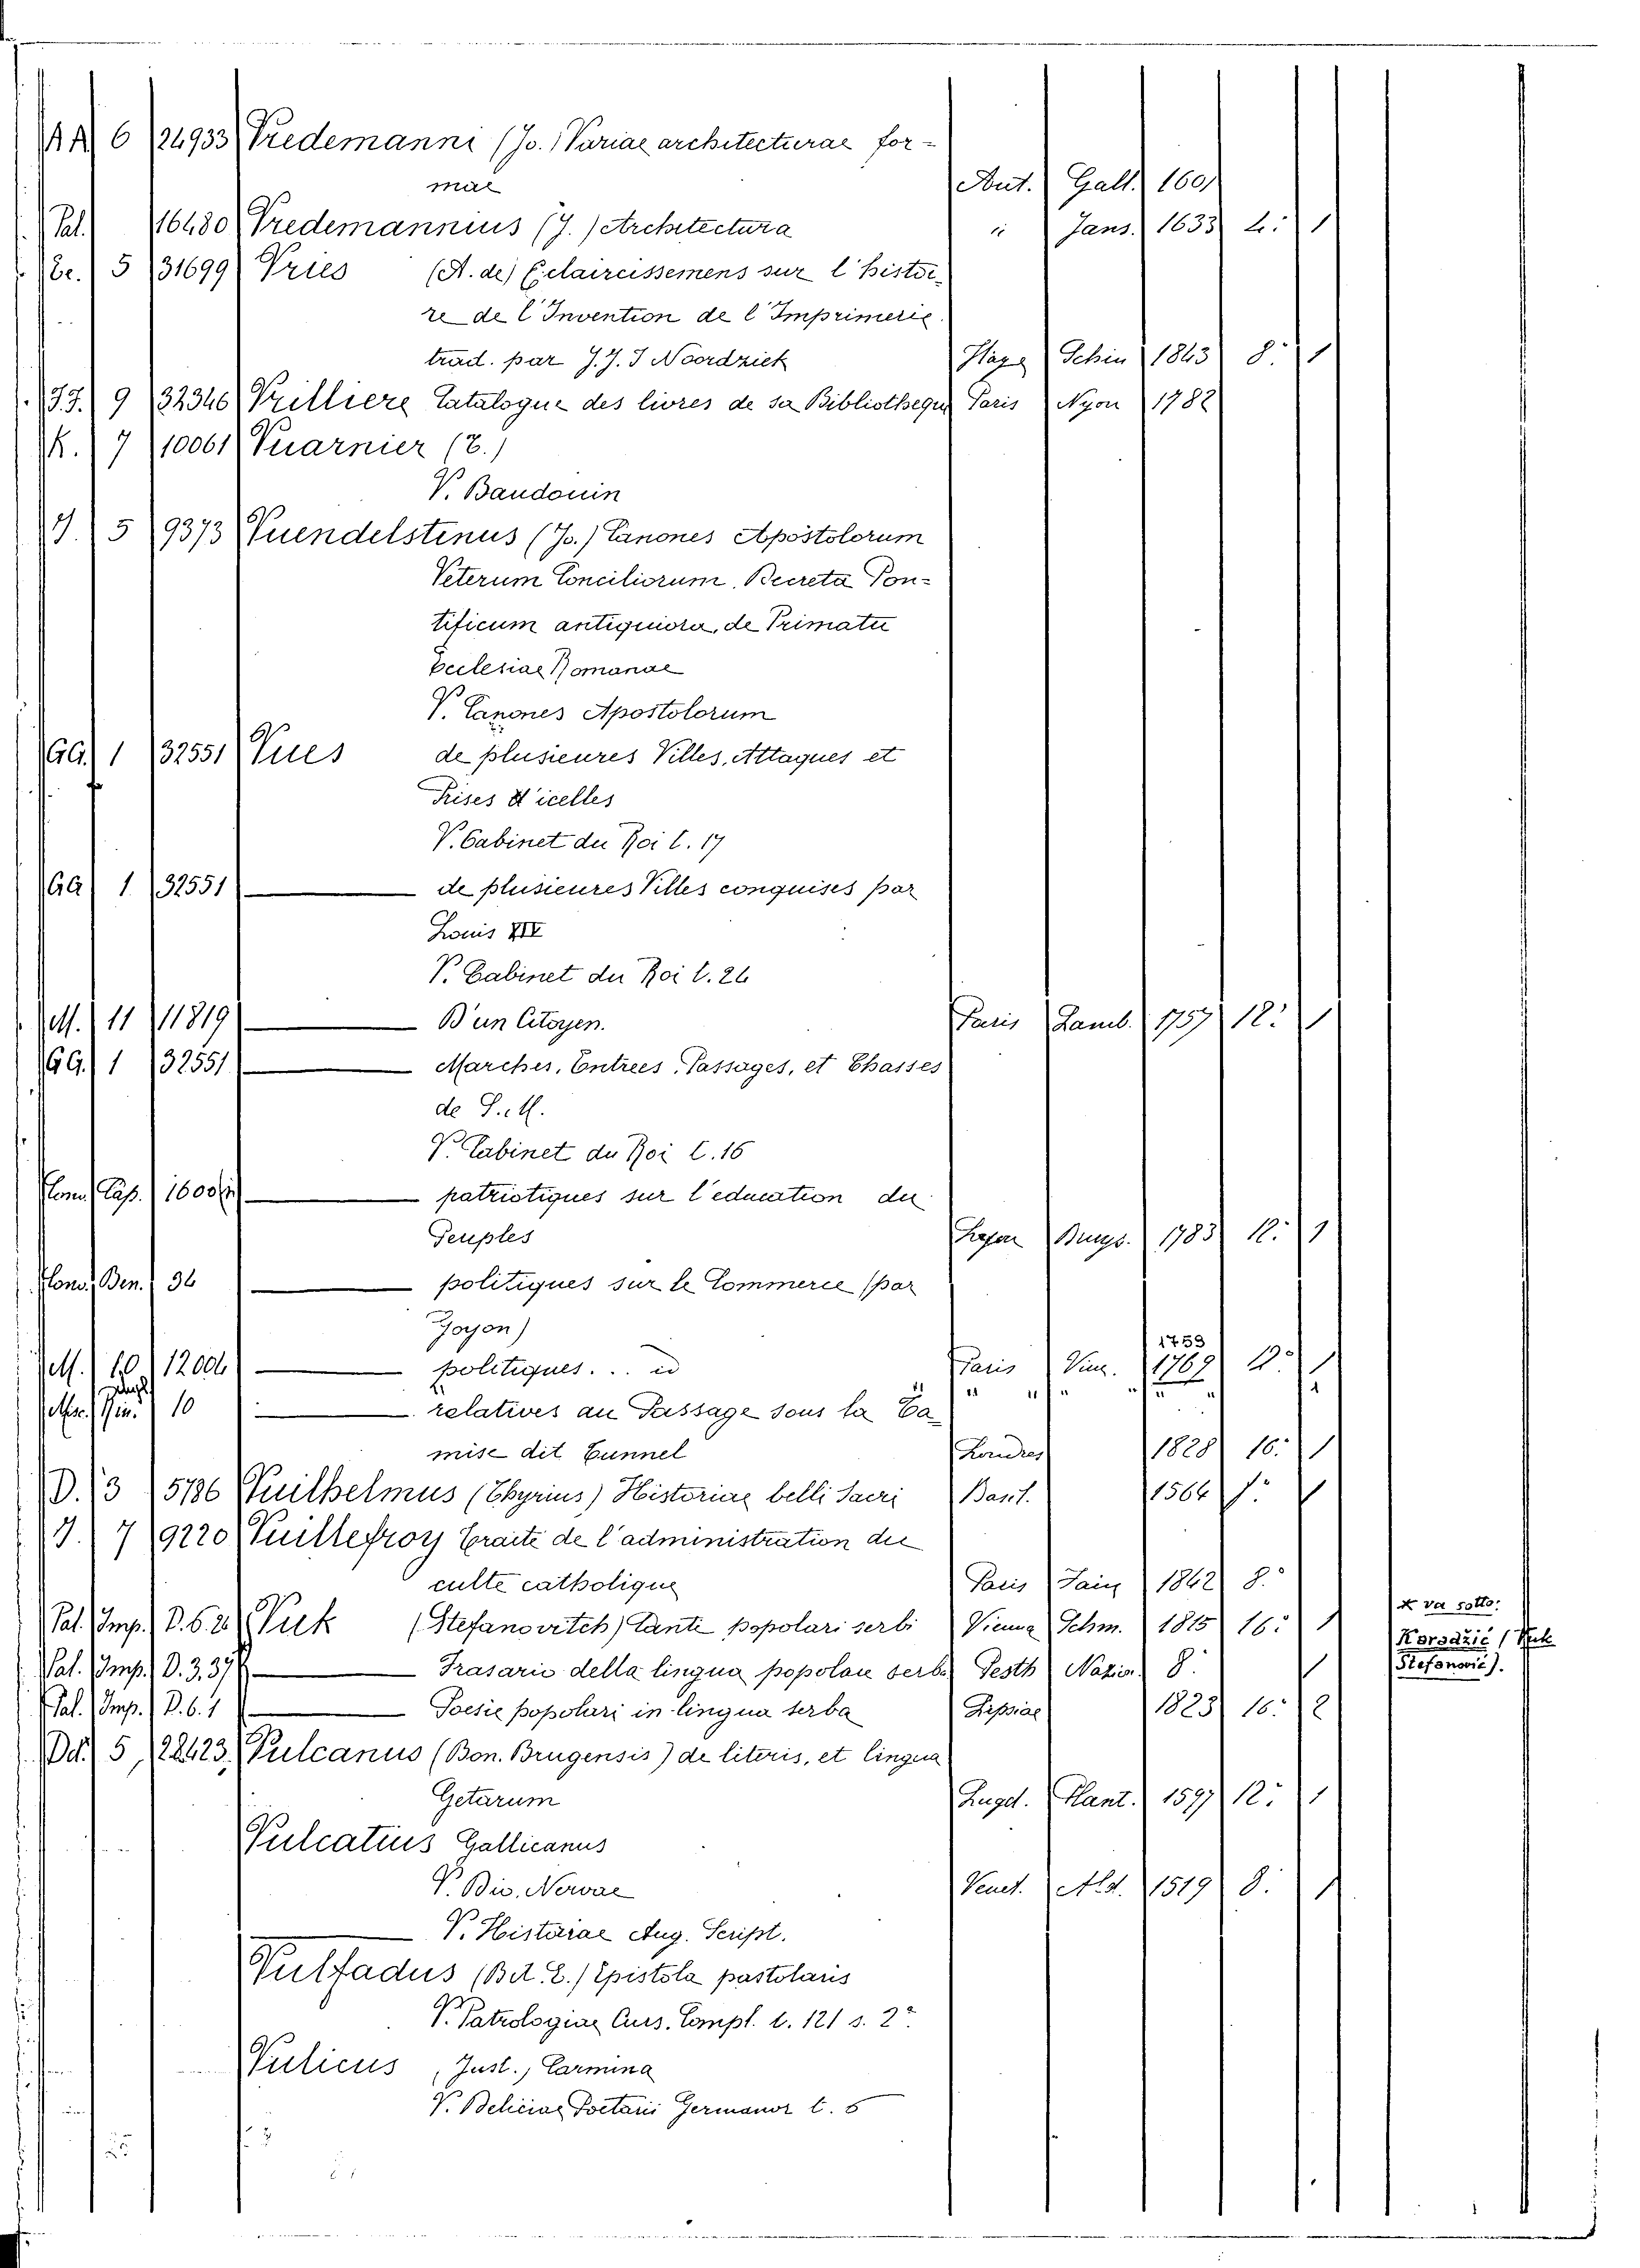 AA 6 24933 Vredemanni (Jo.) Variae architecturae for-
mae Ant. Gall. 1601
Pal. 16480 Vredemannius (J.) Architectura " Jans. 1633 4: 1
Ee. 5 31699 Vries (A. de) Eclaircissemens sur l'histoi-
re de l'Invention de l'Imprimerie
trad. par J.J.J Noordziek Haye Schin 1843 8: 1
JJ. 9 32346 Vrilliere Catalogue des livres de sa Bibliotheque Paris Nyon 1782
K. 7 10061 Vuarnier (T.)
V. Baudouin
J. 5 9373 Vuendelstinus (Jo.) Canones Apostolorum
Veterum Conciliorum, Decreta Pon-
tificum antiquiora, de Primatu
Ecclesiae Romanae
V. Canones Apostolorum
GG. 1 32551 Vues de plusieures Villes, Attaques et
Prises d'icelles
V. Cabinet du Roi t. 17
GG 1. 32551 de plusieures Villes conquises par
Louis XIV
V. Cabinet du Roi t. 24
M. 11 11819 D'un Citoyen. Paris Lamb. 1757 12: 1
GG. 1 32551 Marches, Entrees, Passages, et Chasses
de S.M.
V. Cabinet du Roi t. 16
Cap. 1600 patriotiques sur l'education du
Peuples 1783 12: 1
Ben. 34 politiques sur le Commerce (par
Goyon)
1759
M. 10 12004 politiques... id Paris Vinc. 1769 12: 1
10 relatives au Passage sous la Ta-
mise dit Tunnel Londres 1828 16: 1
D. 3 5786 Vuilhelmus (Thyrius) Historiae belli Sacri Basil. 1564 f: 1
J. 7 9220 Vuillefroy Traite de l'administration du
culte catholique Paris 1842 8:
Pal. Imp. D. 6. 2 Vuk (Stefanovitch) Canti popolari serbi Vienna Schm. 1815 16: 1
x va sotto:
Karadzić (Vuk
Stefanović).
Pal. Imp. D. 3, 37 Frasario della lingua popolare serba Pesth Nazion. 8: 1
Pal. Imp. D. 6. 1 Poesie popolari in lingua serba Lipsiae 1823 16: 2
Dd. 5, 28423, Vulcanius (Bon. Brugensis) de literis, et lingua
Getarum Lugd. Plant. 1597 12: 1
Vulcatius Gallicanus
V. Dio, Nervae Venet. Ald. 1519 8: 1
V. Historiae Aug. Script.
Vulfadus (Bit. E.) Epistola pastolaris
V. Patrologiae Curs. Compl. t. 121 s. 2ª
Vulicus (Just.) Carmina
V. Deliciae Poetarii Germanor t. 6